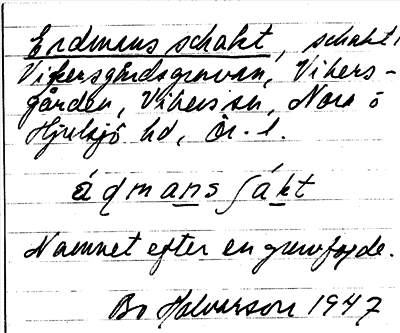 Erdmans schakt, schakt i
Vikersgårdsgruvan, Vikers-
gården, Vikers sn, Nora o
Hjulsjö hd, Ör. l.
ádmans ʃákt
Namnet efter en gruvfogde.
Bo Halvarson 1947